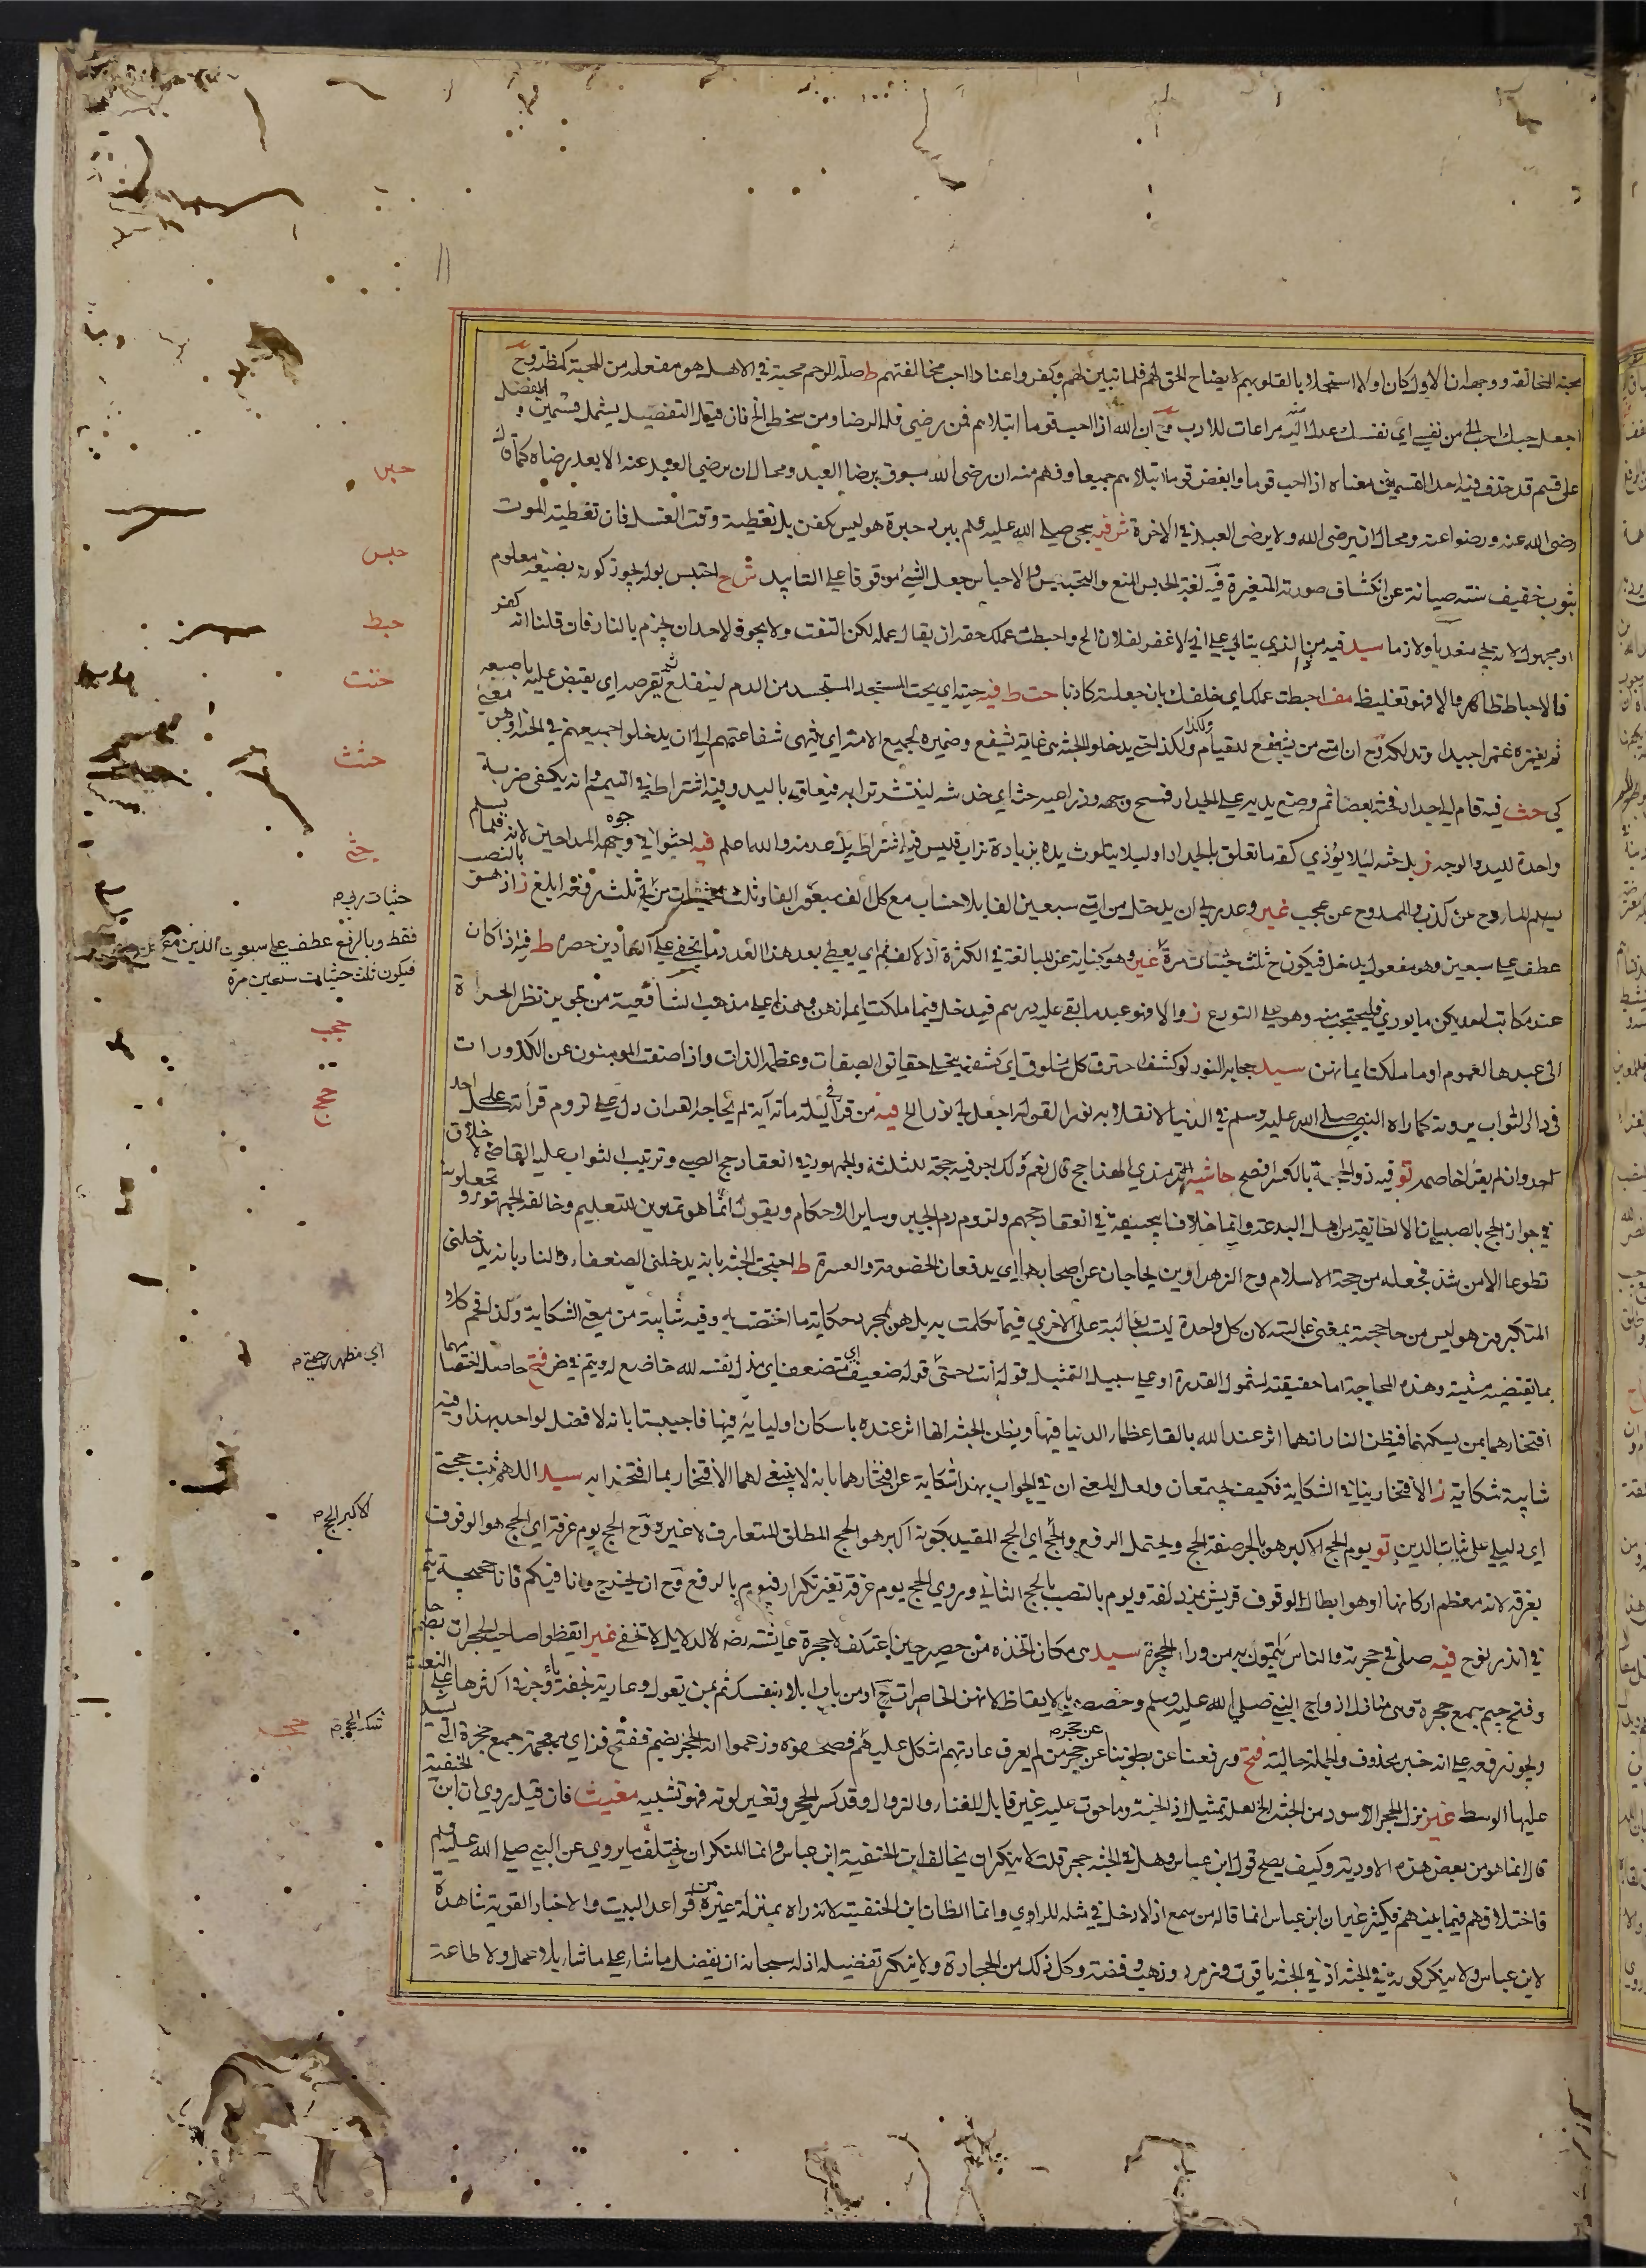 محبته المخالفة ووجهان الاول كان اولا استجلابا لقلوبهم لا يضاح الحق لهم فلما تبين لهم وكفروا عنادا احب مخالفتهم ط صلة الرحم محبة في الاهل هو مفعلة من المحبة كمظنة وح
اجعل حبك احب الي من نفسي اي نفسك عدل اليه مراعات للادب مح ان الله اذا احب قوما ابتلاهم فمن رضي فله الرضا ومن سخط الخ فان قيل التفضيل يشمل قسمين و
على قسم قد حذف فيه احد القسمين معناه اذا احب قوما وابغض قوما ابتلاهم جميعا وفهم منه ان رضى الله مسبوق برضا العبد ومحال ان يرضى العبد عنه الا بعد رضاه كما قال
رضى الله عنه ورضوا عنه ومحال ان يرضى الله ولا يرضى العبد في الاخرة ش فيه سجي صلى الله عليه وسلم ببرد حبرة هو ليس كفن بل تغطية وقت الغسل فان تغطية الموت
بثوب خفيف سنة صيانة عن انكشاف صورته المتغيرة فيه لغة الحبس المنع والتحبيس والاحباس جعل الشئ موقوفا على التابيد ش ح احتبس بوله يجوز كونه بصيغة معلوم
او مجهول لانه يجئ متعديا ولازما سيد فيه من ذا الذي يتالى على اني لا اغفر لفلان الخ واحبطت عملك حقه ان يقال عمله لكن التفت ولا يجوز لاحد ان يجزم بالنار فان قلنا انه كفر
فالاحباط ظاهر والا فهو تغليظ مف احبطت عملك اي خلفك بان جعلته كاذبا حت ط فيه حتيه اي بحت المستجد المستجسد من الدم لينقلع ثم يقرصه اي يقبض عليه باصبعه
ثم يغمزه غمزا جيدا وتدلكه وح ان امتي من يشفع للقيام ولكذا حتى يدخلوا الجنة هى غاية تشفع وضميره لجميع الامة اي ينتهى شفاعتهم الى ان يدخلوا جميعهم في الجنة او هو
كي حث فيه قام الى جدار فحثه بعصا ثم وضع يديه على الجدار فمسح وجهه وذراعيه حثه اي خدشه لينتشر ترابه فيعلق باليد وفيه اشتراط في التيمم وانه يكفى ضربة
واحدة لليد والوجه ز بل حثه لئلا يؤذي كفه ما تعلق بالجدار او ليلا يتلوث يده بزيادة تراب فليس فيه اشتراط يد عد منه والله اعلم فيه احثوا في وجوه المداحين لانه قلما
يسلم المادح عن كذب والممدوح عن عجب غير وعد ربي ان يدخل من امتي سبعين الفا بلا حساب مع كل الف سبعون الفا وثلث حثيات من ثلث رفعه ابلغ ز اذ هو
عطف على سبعين وهو مفعول يدخل فيكون ح ثلث حثيات مرة غير وهو كناية عن المبالغة في الكثرة اذ لا كف ثم اي يعطى بعد هذا العدد ما يخفى على العادين حصره ط فيه اذا كان
عند مكاتب احديكن ما يوري فليحتجب منه وهو على التورع ز والا فهو عبد ما بقي عليه درهم فيدخل فيما ملكت ايمانهن وهذا على مذهب الشافعية من تجويز نظر الحرة
الى عبدها لعموم او ما ملكت ايمانهن سيد حجابه النور لو كشف احترق كل مخلوق اي كشفه بتجلى حقائق الصفات وعظمة الذات واذا صفت المؤمنون عن الكدورات
فى دار الثواب يرونه كما راه النبي صلى الله عليه وسلم في الدنيا لانقلابه نورا لقوله اجعل لي نورا الخ فيه من قرأ في ليلة مائة آية لم يحاجه القران دل على لزوم قرأته على كل احد
احد وان لم يقرأ خاصمه تو فيه ذو الحجة بالكسر افصح حاشية الترمذي الهذا حج قال نعم ولك اجر فيه حجة للثلثة والجمهور في انعقاد حج الصبي وترتيب الثواب عليه القاضي لا خلاق
في جواز الحج بالصبيان الا لطائفة من اهل البدعة وانما خلاف ابي حنيفة في انعقاد حجهم ولزوم دم الجبر وسائر الاحكام ويقول انما هو تمرين للتعليم وخالفه الجمهور ويجعلونه
تطوعا الا من شذ فجعله من حجة الاسلام وح الزهراوين يحاجان عن اصحابهما اي يدفعان الخصومة والعسرة ط احتجت الجنة بانه يدخلني الضعفاء والنار بانه يدخلنى
المتكبرون هو ليس من حاججته بمعنى غالبته لان كل واحدة ليست بغالبة على الاخرى فيما تكلمت به بل هن لمجرد حكاية ما اختصت به وفيه شائبة من معنى الشكاية ولذا افحم كلا
بما يقتضيه مشيته وهذه المحاجة اما حقيقة لشمول القدرة او على سبيل التمثيل قوله انت رحمتي قوله ضعيف اي متضعف اي مذل نفسه لله خاضع له ويتم في ض فتح حاصل اختصامهما
افتخارهما بمن يسكنهما فيظن النار انهما اثر عند الله بالقاء عظماء الدنيا فيها ويظن الجنة انها اثر عنده باسكان اوليائه فيها فاجيبتا بانه لا فضل لواحد بهذا وفيه
شائبة شكاية ز الافتخار ينافي الشكاية فكيف يجتمعان ولعل المعنى ان في الجواب بهذا شكاية عن افتخارهما بانه لا ينبغي لهما الافتخار بما افتخرا به سيد اللهم ثبت حجتي
اي دليلي على ثبات الدين تو يوم الحج الاكبر هو بالجر صفة الحج ويحتمل الرفع والحج اي الحج المقيد بكونه اكبر هو الحج المطلق المتعارف لا غيره وح الحج يوم عرفة اي الحج هو الوقوف
بعرفه لانه معظم اركانها او هو ابطال الوقوف قريش بمزدلفة ويوم بالنصب بالحج الثاني وروي الحج يوم عرفة بغير تكرار فيوم بالرفع وح ان يخرج وانا فيكم فانا حجيجه يتم
في انذر نوح فيه صلى في حجرته والناس يأتمون به من وراء الحجرة سيد هى مكان اتخذه من حصير حين اعتكف لا حجرة عائشة رضه لا لدلايل لا تخفى غير ايقظوا صاحب الحجرات بضم حا
وفتح جيم جمع حجرة وهى منازل ازواج النبي صلى الله عليه وسلم وخصصن بالايقاظ لانهن الحاضرات ح او من باب ابدا بنفسك ثم بمن تعول وعارية بخفة يا وجر في اكثرها على النعت
ويجوز رفعه على انه خبر محذوف والجملة حالية فتح ورفعنا عن بطوننا عن حجر حجر من لم يعرف عادتهم اشكل عليهم فصحفوه وزعموا انه الحجز بضم ففتح فزاي معجمة جمع حجزة التي
عليها الوسط غير نزل الحجر الاسود من الجنة الخ لعله تمثيل اذ الجنة وما حوت عليه غير قابل للفناء والزوال وقد كسر الحجر وتغير لونه فهو تشبيه مغيث فان قيل يروى ان ابن الحنفية
قال انما هو من بعض هذه الاودية وكيف يصح قول ابن عباس وهل في الجنة حجر قلت لا ينكر ان يخالف ابن الحنفية ابن عباس وانما المنكر ان يختلف ما يروى عن النبي صلى الله عليه وسلم
فاختلافهم فيما بينهم فكثير غير ان ابن عباس انما قاله من سمع اذ لا دخل في مثله للراوي وانما الظان ابن الحنفية لانه راه بمنزلة غيره من قواعد البيت والاخبار القوية شاهدة
لابن عباس ولا ينكر كونه في الجنة اذ في الجنة ياقوت وزمرد وذهب وفضة وكل ذلك من الحجارة ولا ينكر تفضيله اذ له سبحانه ان يفضل ما شاء على ما شاء بلا عمل ولا طاعة
حبس
حبط
حتت
حثث
حثى
حثيات ربي م
فقط وبالرفع عطف على سبعون الذين مع كل
فيكون ثلث حثيات سبعين مرة
حجب
حجج
اي مظهر رحمتي م
الاكبر الحج م
تنكر الحجر م
حجر